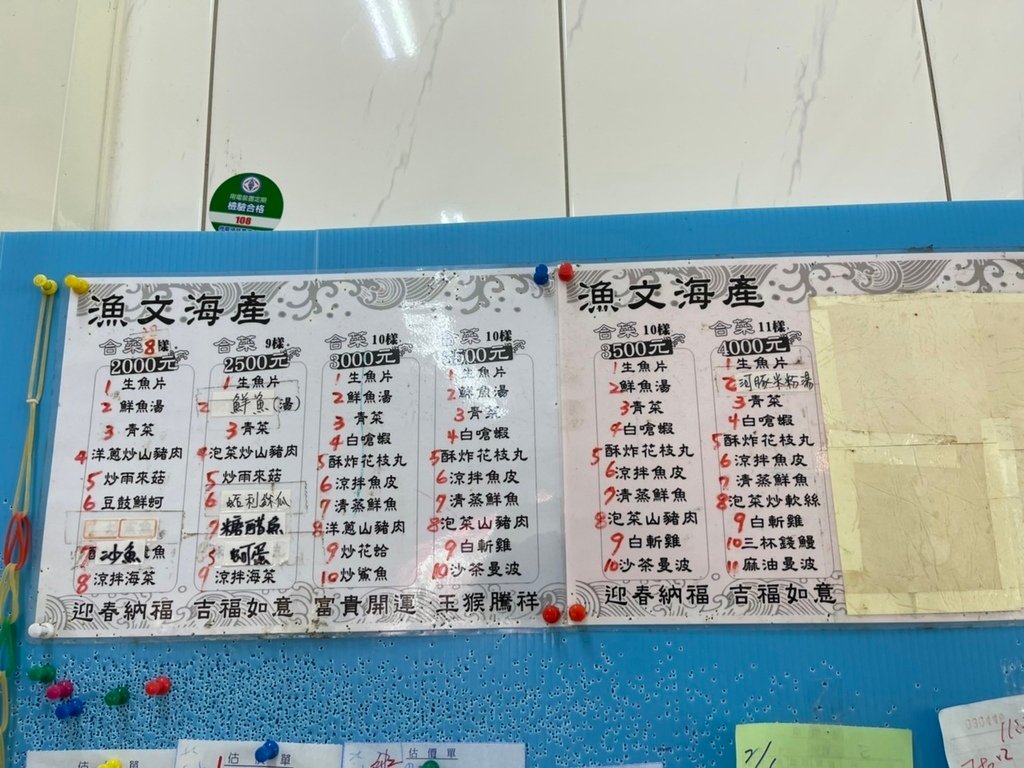 用電裝置定期
檢驗合格
108
漁文海產
合菜8樣
2000元
1生魚片
2鮮魚湯
3青菜
4洋蔥炒山豬肉
5炒雨來菇
6豆鼓鮮蚵
7沙魚
8涼拌海菜
合菜9樣
2500元
1生魚片
2鮮魚(湯)
3青菜
4泡菜炒山豬肉
5炒雨來菇
6
7糖醋魚
8蚵蛋
9涼拌海菜
合菜10樣
3000元
1生魚片
2鮮魚湯
3青菜
4白嗆蝦
5酥炸花枝丸
6涼拌魚皮
7清蒸鮮魚
8洋蔥山豬肉
9炒花蛤
10炒鯊魚
合菜10樣
500元
1生魚片
2鮮魚湯
3青菜
4白嗆蝦
5酥炸花枝丸
6涼拌魚皮
7清蒸鮮魚
8泡菜山豬肉
9白斬雞
10沙茶曼波
迎春納福 吉福如意 富貴開運 玉猴騰祥
漁文海產
合菜10樣
3500元
1生魚片
2鮮魚湯
3青菜
4白嗆蝦
5酥炸花枝丸
6涼拌魚皮
7清蒸鮮魚
8泡菜山豬肉
9白斬雞
10沙茶曼波
合菜11樣
4000元
1生魚片
2河豚米粉湯
3青菜
4白嗆蝦
5酥炸花枝丸
6涼拌魚皮
7清蒸鮮魚
8泡菜炒軟絲
9白斬雞
10三杯錢鰻
11麻油曼波
迎春納福 吉福如意
估價單
估價單